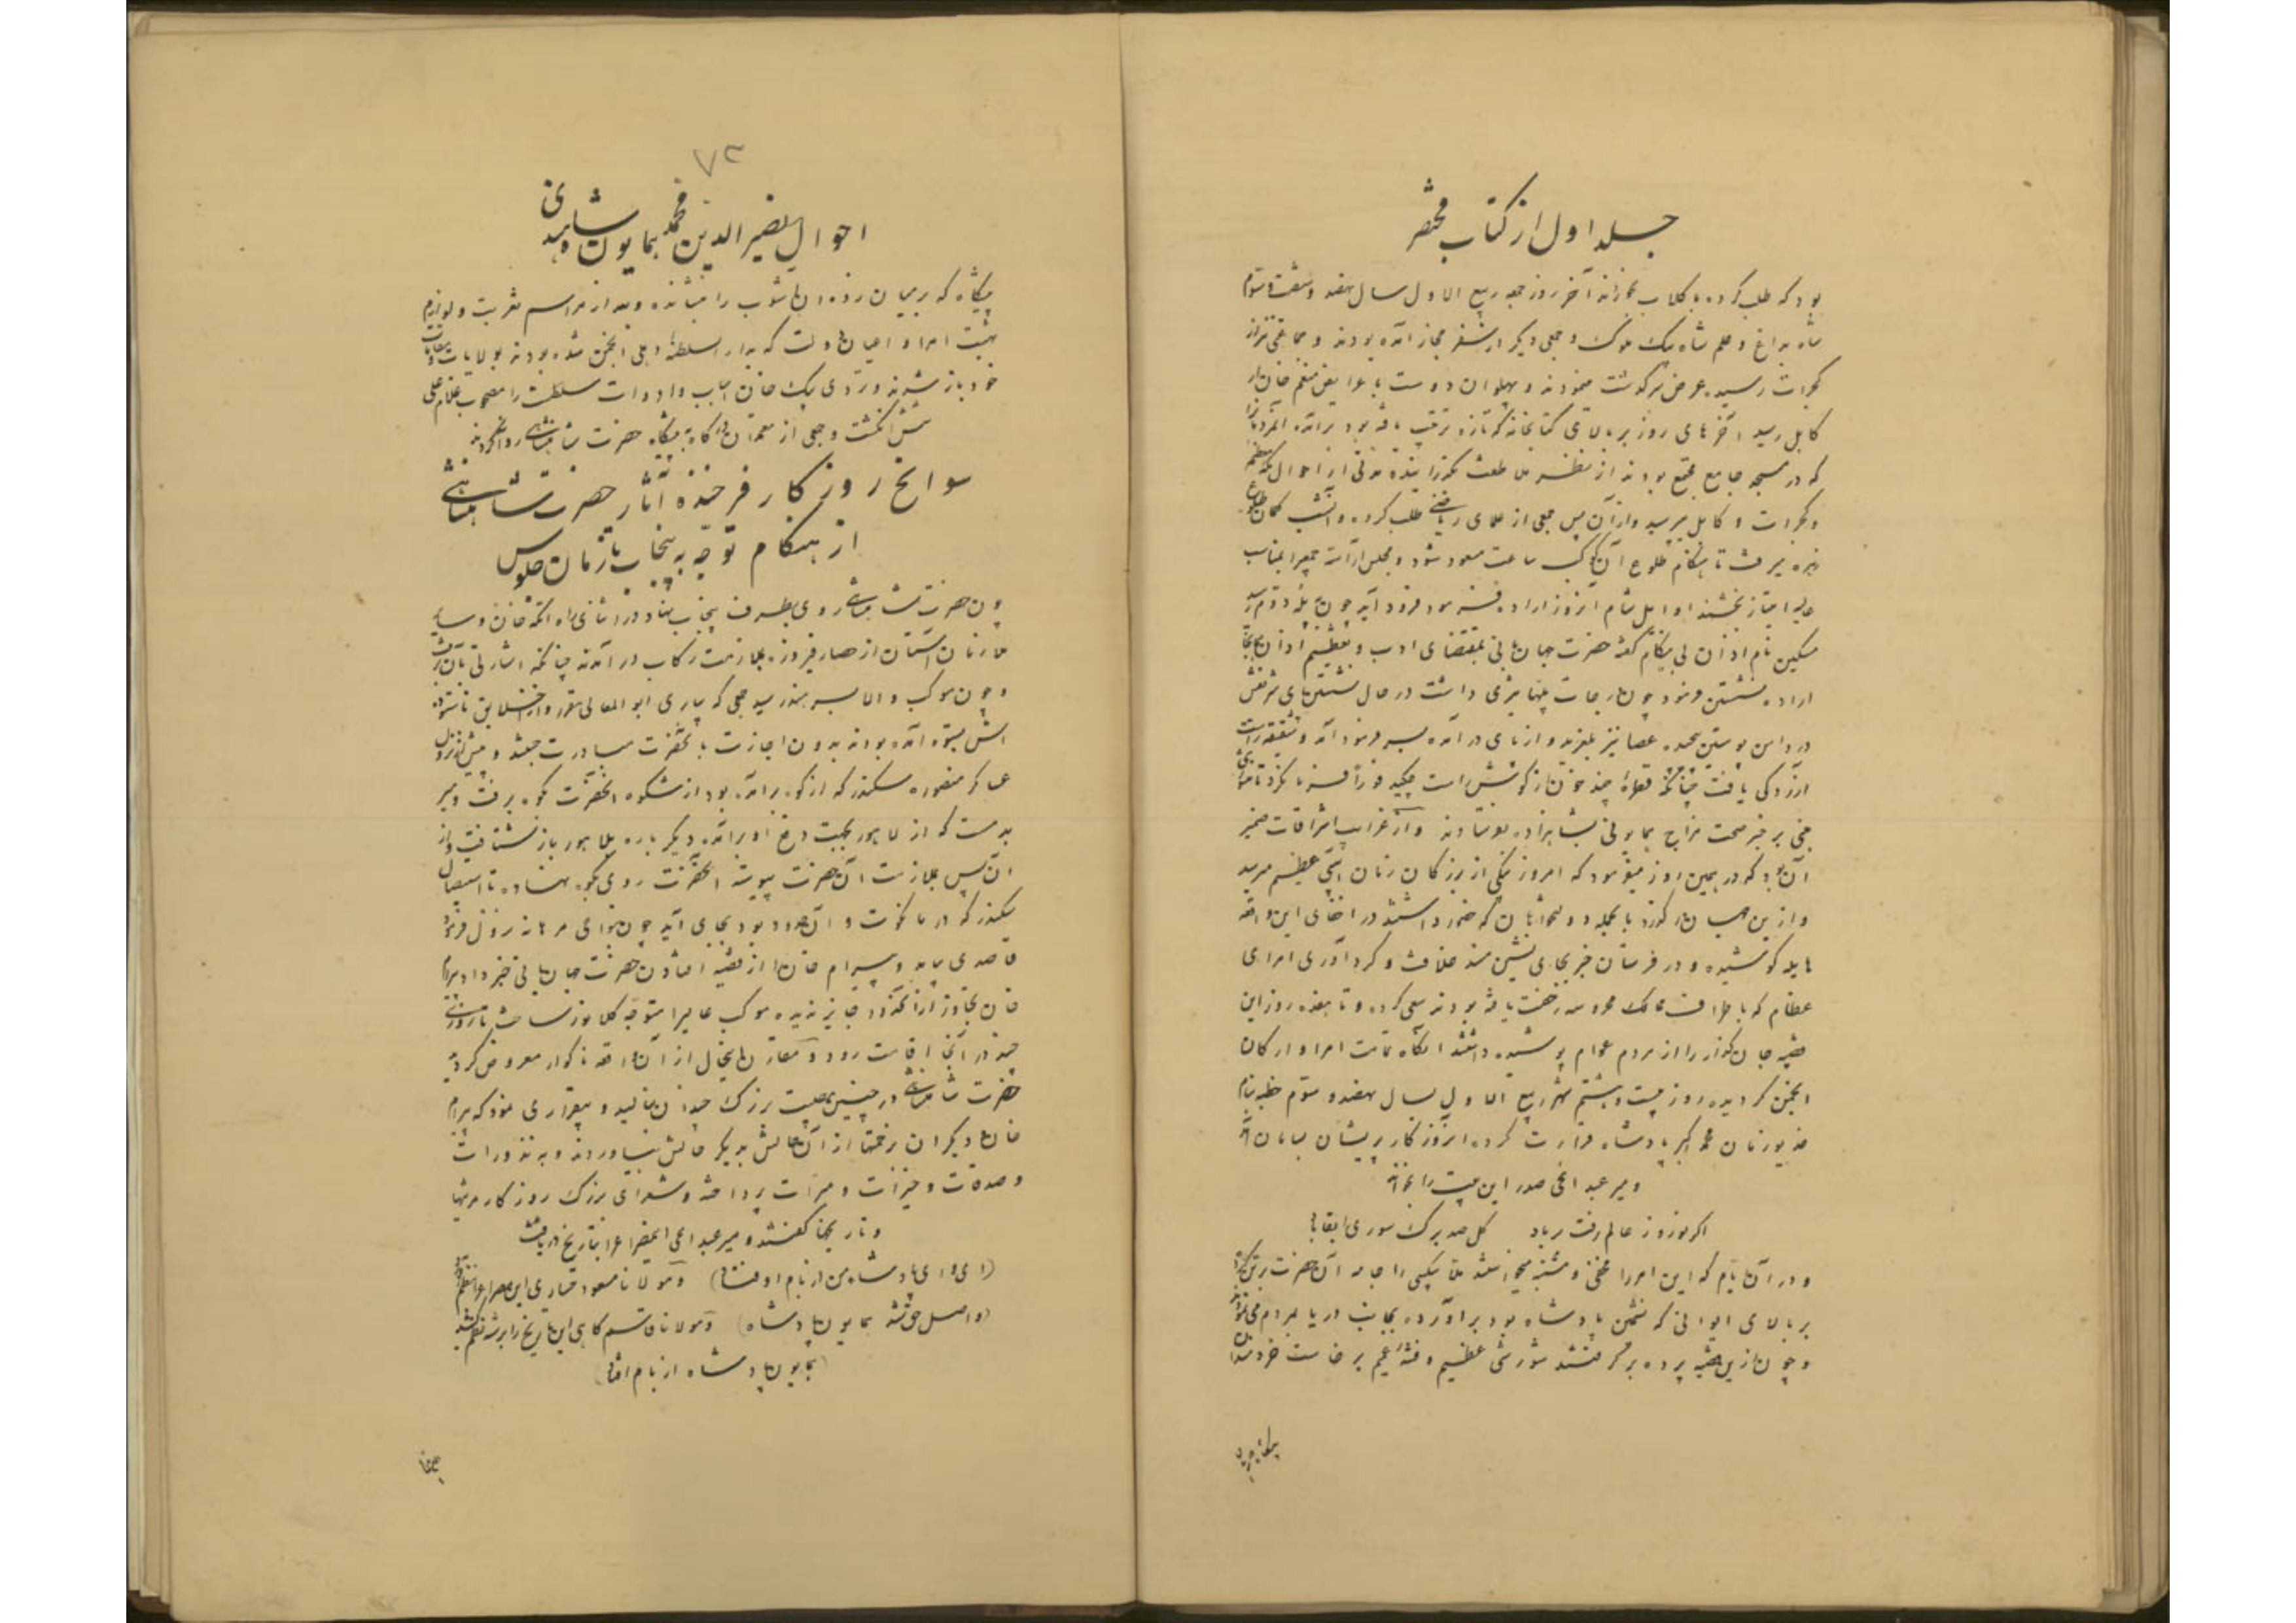 جلد اول از کتاب مختصر
بود که طلب کرده با کلاب نجواند آخر روز جمعه ربیع الاول سال نهصد و شصت و سوم
شاه بداغ و علم شاه بیک ملوک و جمعی دیگر از سفر حجاز آمده بودند و جماعتی نیز از
کجرات رسیده عرض سرگذشت مینمودند و پهلوان دوست با عرایض منعم خان از
کابل رسید آخرهای روز بر بالای کتابخانه که تازه ترتیب یافته بود برآمده مردم را
که در مسجد جامع مجتمع بودند از نظر طلعت گذرانیده مدتی از احوال مکه معظمه
و کجرات و کابل پرسید و از آن پس جمعی از علمای ریاضی طلب کرده و آنشب گمان طلوع
زهره میرفت تا هنگام طلوع آن کوکب ساعت مسعود شود و مجلس آراسته جمعی را بمناصب
عالیه امتیاز بخشند اوایل شام آنروز اراده فرمود فرود آید چون به پله دوم رسید
مسکین نام اذان بی هنگام گفته حضرت جهانبانی بمقتضای ادب و تعظیم اذان همانجا
اراده نشستن فرمود چون درجات پلها تیزی داشت در حال نشستن پای شریفش
در دامن پوستین پیچیده عصا نیز بلغزید و از پای در آمده بسر فرود آمد و شقیقه راست
آزردگی یافت چنانکه قطرهٔ چند خون از گوش راست چکید فوراً
مبنی بر خبر صحت مزاج همایونی بشاهزاده بفرستادند و از غرایب اشراقات ضمیر
آن بود که در همین روز میفرمود که امروز یکی از بزرگان زمان آسیبی عظیم میرسد
و از این جهان درگذرد بالجمله دولتخواهان که حضور داشتند در اخفای این واقعه
هایله کوشیده و در فرستادن خبر بجای نشین مسند خلافت و گردآوری امرای
عظام که باطراف ممالک محروسه رخصت یافته بودند سعی کرده و تا هفده روز این
قضیه جان گداز را از مردم عوام پوشیده داشتند آنگاه تمامت امرا و ارکان
انجمن گردیده روز بیست و هشتم شهر ربیع الاول سال نهصد و سوم خطبه بنام
خدیو زمان محمد اکبر پادشاه قرائت کرده از روزگار پریشان بسامان آمد
و میر عبد الحی صدر این بیت را بخواند
اگر نوروز عالم رفت بر باد گل صد برگ سوری را بقا باد
و در آن ایام که این امر را مخفی و مشتبه میخواستند ملا بیکسی را جامه آن حضرت در بر کرده
بر بالای ایوانی که نشیمن پادشاه بود برآورده بجانب دریا بمردم می نمودند
و چون از این قضیه پرده برگرفتند شورشی عظیم و فتنهٔ عمیم برخاست خردمندان
۷۳
احوال نصیر الدین محمد همایون شاه هندی
پیشگاه که بر همان زده آشوب را بنشانده و بعد از مراسم تعزیت و لوازم
تهنیت امرا و اعیان دولت که بدار السلطنهٔ دهلی انجمن شده بودند بولایات و
خود باز شدند و تردی بیک خان اسباب و ادوات سلطنت را مصحوب غلام علی
شش انگشت و جمعی از معتمدان درگاه به پیشگاه حضرت شاهنشاهی روانه کردند
سوانح روزگار فرخنده آثار حضرت شاهنشاهی
از هنگام توجه به پنجاب تا زمان جلوس
چون حضرت شاهنشاهی روی بطرف پنجاب نهاد در اثنای راه اتکه خان و سایر
ملازمان آستان از حصار فیروزه بملازمت رکاب در آمدند چنانکه اشارتی بآن رفت
و چون موکب والا بسرهند رسید جمعی که بیاری ابو المعالی مقرر و از اخلاق ناستوده
اش بستوه آمده بودند بدون اجازت بآنحضرت مبادرت جستند
عساکر منصوره سکندر که از کوه برآمده بود از شکوه آنحضرت بکوه برفت و میر
بدمست که از لاهور بجهت دفع او برآمده دیگر باره بلاهور باز شتافت و از
آن پس بملازمت آن حضرت پیوست آنحضرت روی بکوه نهاده تا استیصال
سکندر که در مانکوت و آن حدود بود بجای آید چون بنواحی هریانه نزول فرمود
قاصدی بیامد و بیرام خان را از قضیه افتادن حضرت جهانبانی خبر داد بیرام
خان تجاوز از آنحدود جایز ندیده موکب عالیرا متوجه کلانور ساخت تا روزی
چند در آنجا اقامت رود و مقارن اینحال از آن واقعه ناگوار معروض گردید
حضرت شاهنشاهی در چنین مصیبت بزرگ چندان بنالید و بیقراری نمود که بیرام
خان و دیگران زحمتها از آن حالش بدیگر حالش بیاوردند و به نذورات
و صدقات و خیرات و مبرات پرداخته و شعرای بزرگ روزگار مرثیها
و تاریخها گفتند و میر عبد الحی این مصراع را بتاریخ دریافت
(ای وای پادشاه من از بام اوفتاد) و مولانا مسعود حصاری این مصراع را بنظم
(واصل حق شد همایون پادشاه) و مولانا قاسم کاهی این تاریخ را برشته نظم کشید
(همایون پادشاه از بام افتاد)